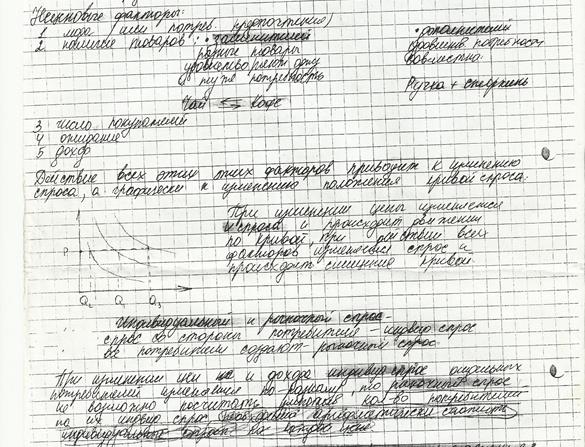 Неценовые факторы:
1 мода (или потреб. предпочтения)
2. наличие товаров: • заменителей • дополнителей
разные товары удовлетв. потребность
удовлетворяют одну совместно.
и ту же потребность
Ручка + стержень
Чай ⇆ Кофе
3 число покупателей
4 ожидание
5 доход
Действие всех этих факторов приводит к изменению
спроса, а графически к изменению положения кривой спроса.
При изменении цены изменяется
спроса и происходит движение
по кривой, при действии всех
факторов изменяется спрос и
происходит смещение кривой
P
Q₂ Q₁ Q₃
Индивидуальный и рыночный спрос -
спрос со стороны потребителя - индивид спрос
все потребители создают рыночный спрос.
При изменении цен и дохода индивид спрос отдельных
потребителей изменяется по-разному, то рыночный спрос
не возможно посчитать кол-во потребителей
на их индивид спрос
индивидуальных на каждую цену